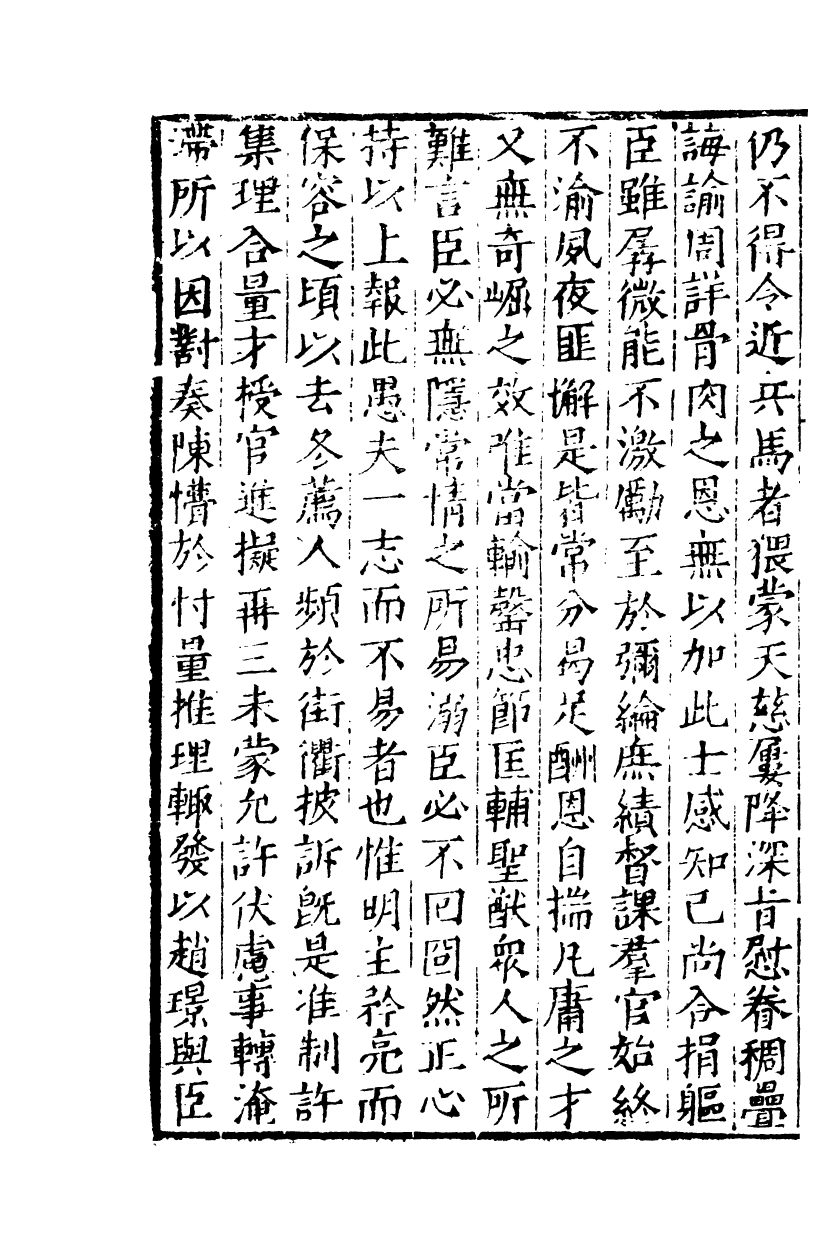 仍不得令近兵馬者猥蒙天慈屢降深旨慰眷稠疊
誨諭周詳骨肉之恩無以加此士感知己尚合捐軀
臣雖孱微能不激勵至於彌綸庶績督課羣官始終
不渝夙夜匪懈是皆常分曷足酬恩自揣凡庸之才
又無奇崛之效唯當輸罄忠節匡輔聖猷衆人之所
難言臣必無隱常情之所易溺臣必不回冏然正心
持以上報此愚夫一志而不易者也惟明主矜亮而
保容之頃以去冬薦人頻於街衢披訴旣是准制許
集理合量才授官進擬再三未蒙允許伏慮事轉淹
滯所以因對奏陳懵於忖量推理輙發以趙璟與臣